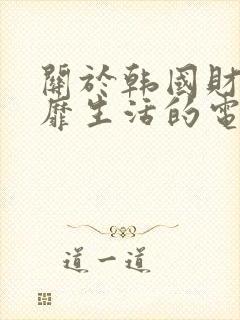 關於韩國財
靡生活的電
道一道